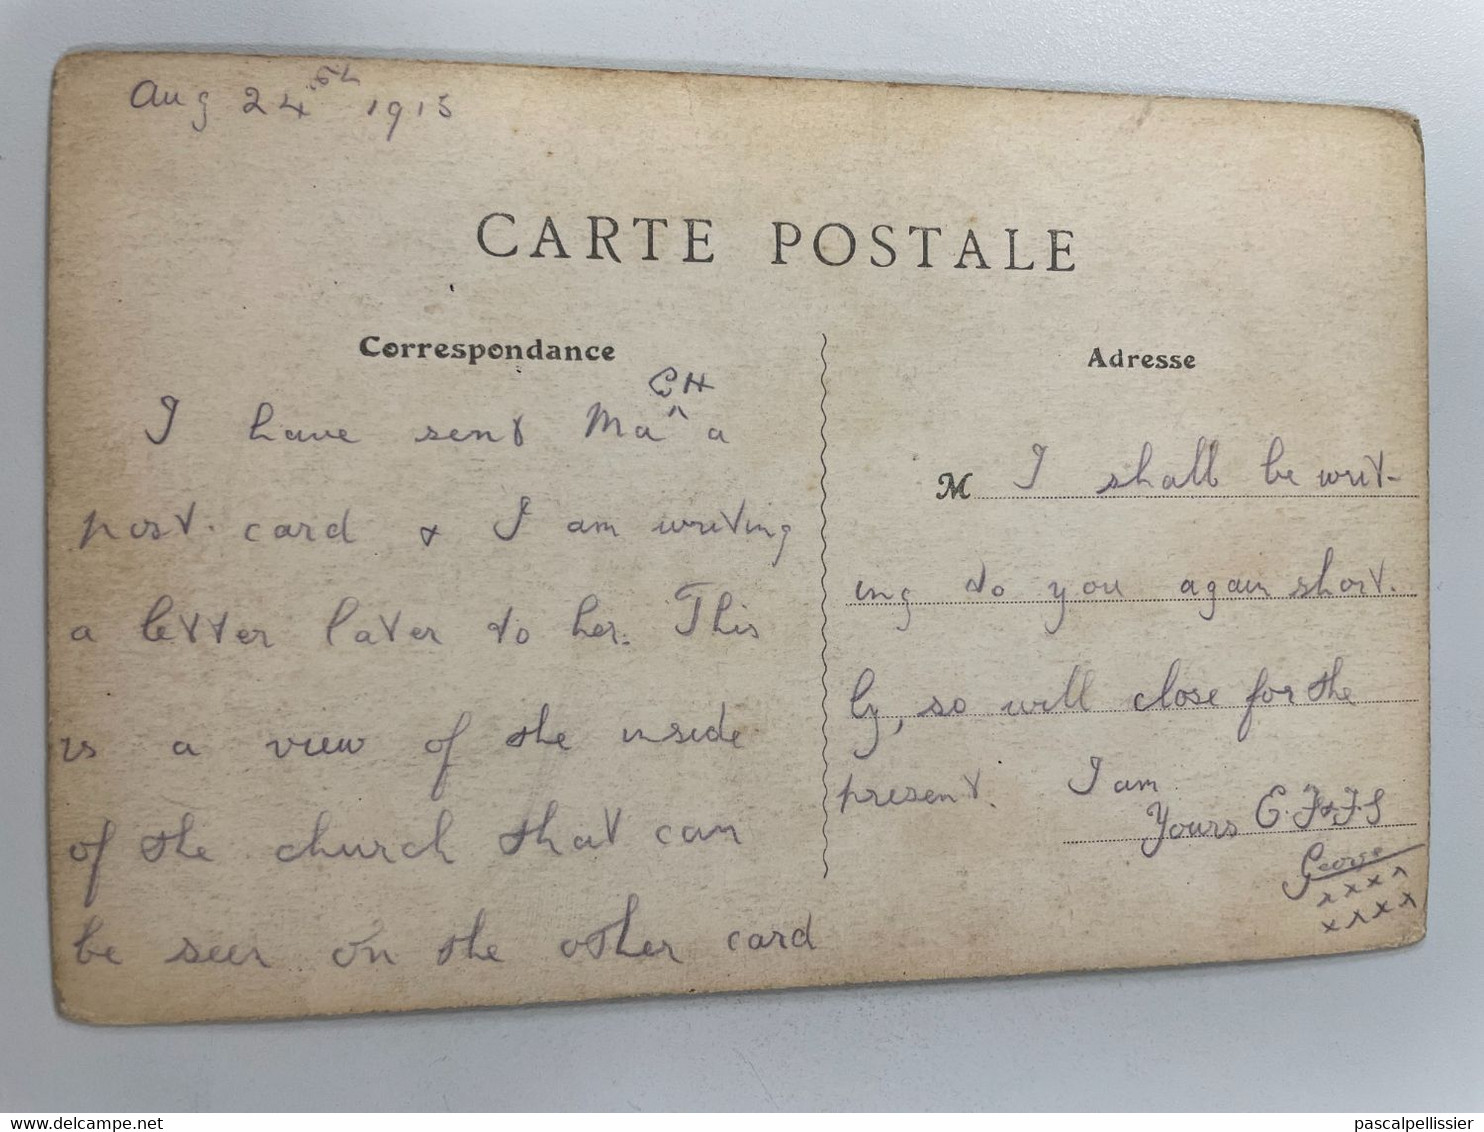 Aug 24th 1915
CARTE POSTALE
Correspondance
CH
I have sent Ma ^ a
post. card & I am writing
a letter later to her. This
is a view of the inside
of the church that can
be seen on the other card
Adresse
M I shall be writ-
ing to you again short.
ly, so will close for the
present. I am
Yours
George
x x x x
x x x x
pascalpellissier